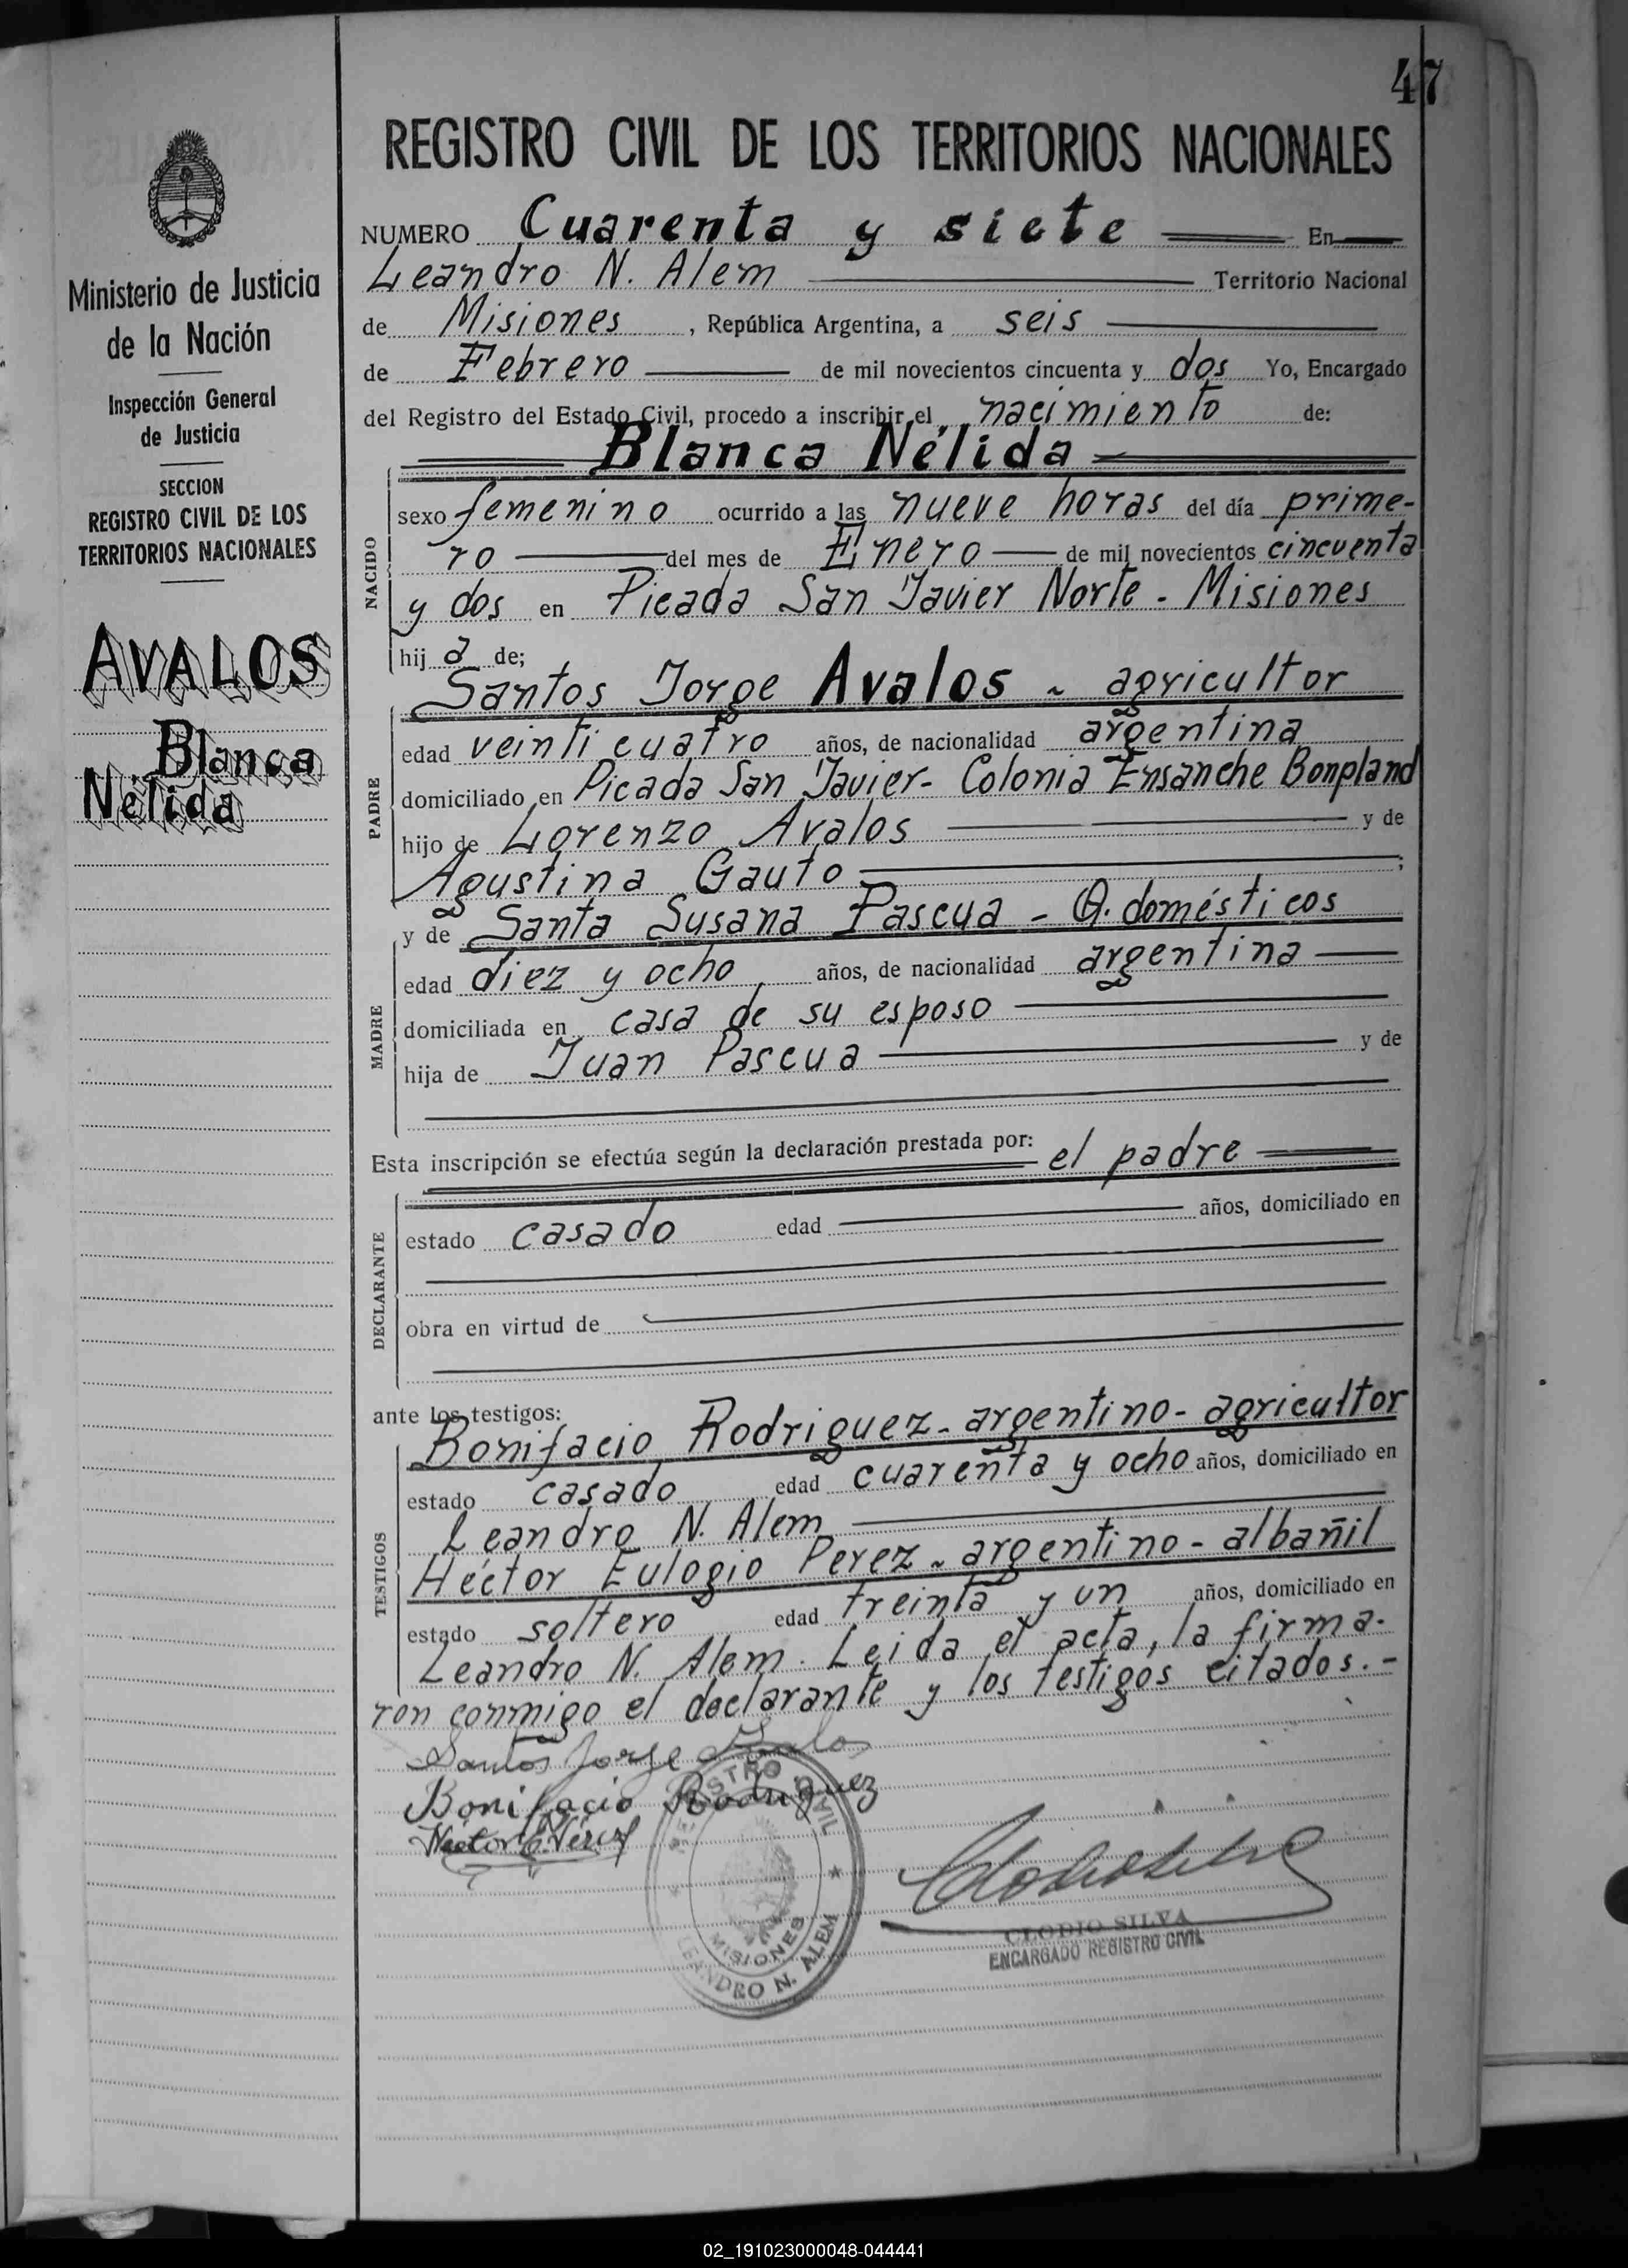 47
REGISTRO CIVIL DE LOS TERRITORIOS NACIONALES
Ministerio de Justicia
de la Nación
Inspección General
de Justicia
SECCION
REGISTRO CIVIL DE LOS
TERRITORIOS NACIONALES
AVALOS
Blanca
Nélida
NUMERO Cuarenta y siete En
Leandro N. Alem Territorio Nacional
de Misiones, República Argentina, a seis
de Febrero de mil novecientos cincuenta y dos Yo, Encargado
del Registro del Estado Civil, procedo a inscribir el nacimiento de:
Blanca Nélida
NACIDO
sexo femenino ocurrido a las nueve horas del día prime-
ro del mes de Enero de mil novecientos cincuenta
y dos en Picada San Javier Norte - Misiones
hij a de;
Santos Jorge Avalos - agricultor
PADRE
edad veinticuatro años, de nacionalidad argentina
domiciliado en Picada San Javier- Colonia Ensanche Bonpland
hijo de Lorenzo Avalos y de
Agustina Gauto ;
y de Santa Susana Pascua - Q. domésticos
MADRE
edad diez y ocho años, de nacionalidad argentina
domiciliada en casa de su esposo
hija de Juan Pascua y de
Esta inscripción se efectúa según la declaración prestada por: el padre
DECLARANTE
estado casado edad años, domiciliado en
obra en virtud de
ante los testigos:
Bonifacio Rodriguez- argentino- agricultor
TESTIGOS
estado casado edad cuarenta y ocho años, domiciliado en
Leandro N. Alem
Héctor Eulogio Perez - argentino - albañil
estado soltero edad treinta y un años, domiciliado en
Leandro N. Alem. Leida el acta, la firma-
ron conmigo el declarante y los testigos citados.-
Santos Jorge Avalos
Bonifacio Rodriguez
Hector E. Pérez
REGISTRO CIVIL
MISIONES
LEANDRO N. ALEM
CLODIO SILVA
ENCARGADO REGISTRO CIVIL
02_191023000048-044441